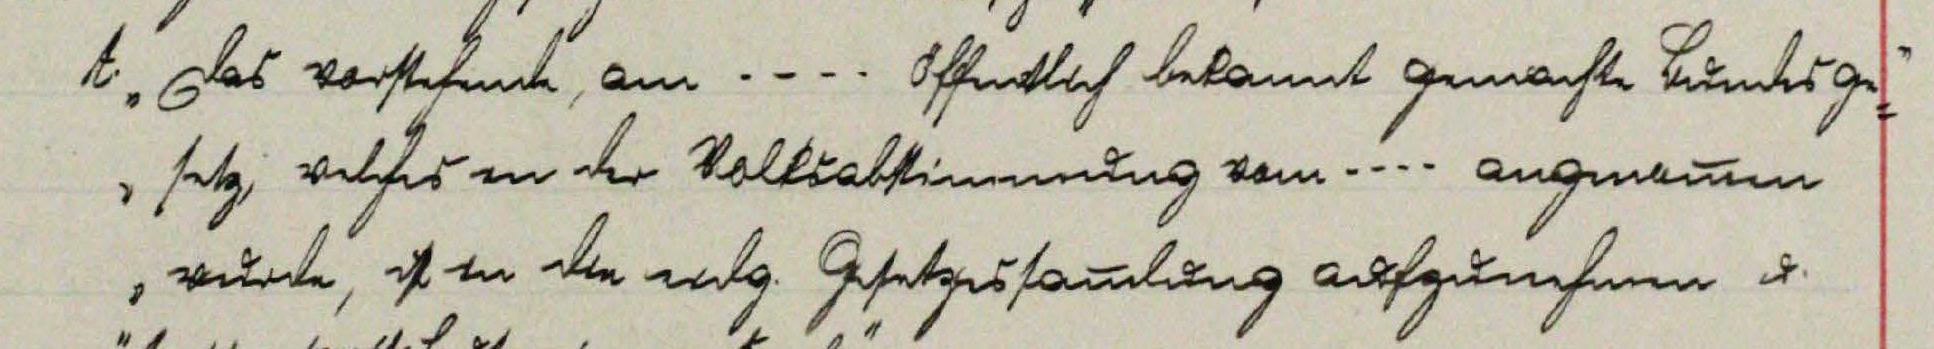 A. „Das vorstehende, am ---- öffentlich bekannt gemachte Bundesge="
„ setz, welches in der Volksabstimmung vom ---- angenom̅en
„ wurde, ist in die eidg. Gesetzessam̅lung aufzunehmen u.